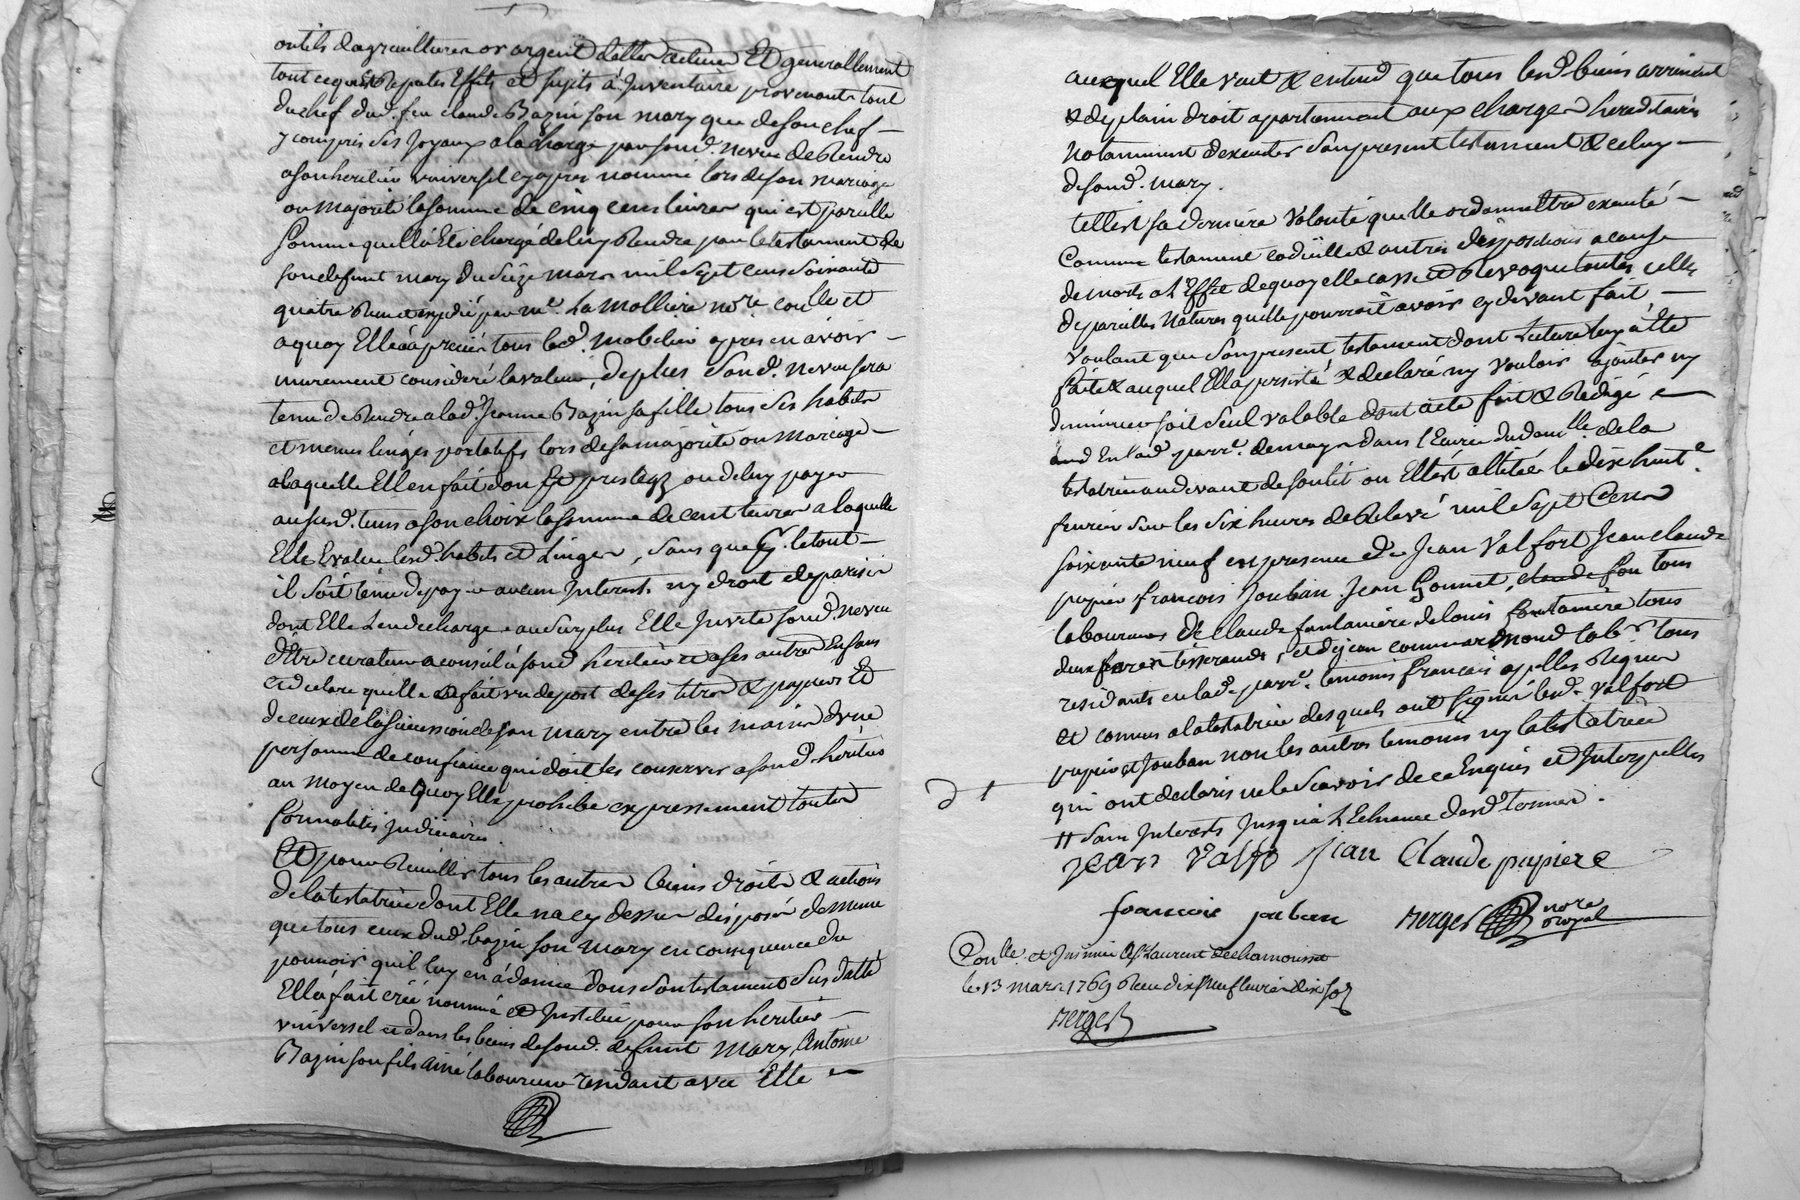 outils d'agriculture or argent dettes actives Et generallement
tout ce qui Est Reputés Effets et sujets à Inventaire provenants tout
du chef dud. feu claude Bazin son mary que de son chef —
y compris ses Joyaux a la charge par sond. neveu de Rendre
a son heritier universel cy apres nommé lors de son mariage
ou majorité la somme de cinq cens livres qui est pareille
somme quil a Eté chargé de luy Rendre par le testament de
son defunt mary du seize mars mil sept cens soixante
quatre Receu et expedié par me. La Molliere nore. coulle et
a quoy Elle a apretié tous led. mobilier apres en avoir —
murement consideré la valeur, de plus sond. neveu sera
tenu de Rendre a lad. Jeanne Bazin sa fille tous ses habits
et menus linges portatifs lors de sa majorité ou mariage —
a laquelle Elle en fait don Et prelegz ou de luy payer
aususd. tems a son choix la somme de cent livres a laquelle
Elle Evalue lesd. habits et Linges, sans que le tout —
il soit tenu de payer aucun Interest ny droit de parisis
dont Elle L'en decharge au surplus Elle Invite sond. neveu
d'Etre curateur a conseil a sond heritier et a ses autres Enfans
et declare quelle a fait un depost de ses titres & papiers Et
de ceux de la succession de son mary entre les mains d'une
personne de confiance qui doit les conserver a sond. heritier
au moyen de quoy Elle prohibe expressement toutes
formalités judiciaires.
Et pour Receuillir tous les autres biens droits & actions
de la testatrice dont Elle n'a cy dessus disposé de meme
que tous ceux dud. bazin son mary en consequence du
pouvoir qu'il luy en a donné dans son testament sus datté
Ella fait créé nommé et Institué pour son heritier —
universel et dans les biens de sond. defunt mary Antoine
Bazin son fils ainé laboureur residant avec Elle
auxquel Elle veut & entend que tous lesd. biens arrivent
& de plain droit apartiennent aux charges hereditaires
notamment d'executer son present testament & celuy —
de sond. mary.
telle est sa derniere volonté quelle ordonne Etre executé —
comme testament codicille & autres dispositions a cause
de mort a L'Effet de quoy elle casse et Revoque toutes celles
de pareilles natures quelle pourroit avoir cy devant fait —
voulant que son present testament dont Lecture luy a Eté
faite & auquel Ella persisté & declaré n'y vouloir ajouter ny
diminuer soit seul valable dont acte fait & Redigé
En lad. parr. de mays dans l'Ecurie du domlle. de la
testatrice au devant de son lit ou Elle est alitée le dix huite.
fevrier sur les six heures de Relevé mil sept Cens
soixante neuf en presence de Jean Valfort Jean claude
papier francois Jouban Jean Gonnet, tous
laboureurs & Claude fontaniere & louis fontaniere tous
deux freres tisserands, et de jean commarmond labr. tous
residants en lad. parr. temoins francais apellés Requis
et connus a la testatrice desquels ont signé lesd. valfort
papier et Jouban non les autres temoins ny la testatrice
qui ont declarés ne le scavoir de ce Enquis et Interpellés
Sans Interests Jusqu'a L'Echeance desd. termes.
jean valfo jean Claude papiere
francois jouban Berger nore royal
Conlle. et Insinué a St. Laurent de chamousset
le 13 mars 1769 Receu dix neuf livres dix sols
Berger